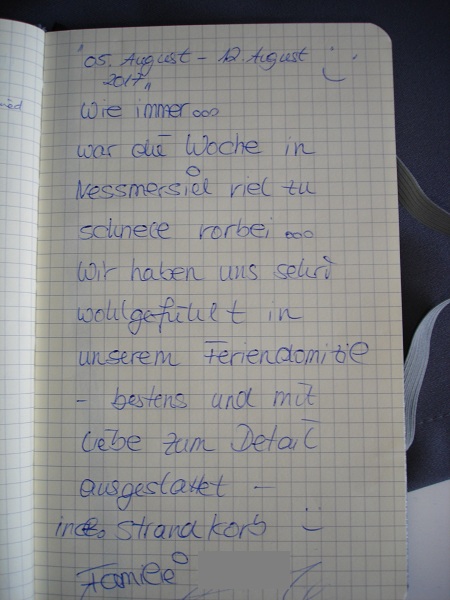 "05. August - 12. August :)
2017"
Wie immer...
war die Woche in
Nessmersiel viel zu
schnell vorbei...
Wir haben uns sehr
wohlgefühlt in
unserem Feriendomizil
- bestens und mit
Liebe zum Detail
ausgestattet -
incl. Strandkorb :)
Familie